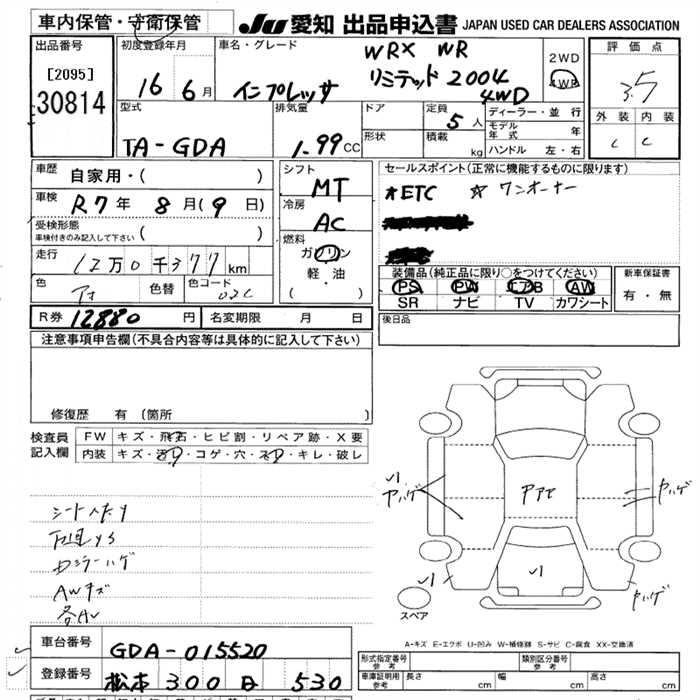 車内保管・守衛保管
JU 愛知 出品申込書 JAPAN USED CAR DEALERS ASSOCIATION
出品番号
[2095]
30814
初度登録年月
16 6月
車名・グレード
WRX WR
インプレッサ リミテッド 2004
4WD
2WD
4WD
評価点
3.5
外装 内装
C C
型式
TA-GDA
排気量
1.99 CC
ドア
形状
定員
5人
積載
kg
ディーラー・並行
モデル年式 年
ハンドル 左・右
車歴
自家用・( )
車検
R7年 8月(9日)
受検形態
車検付きのみ記入して下さい ( )
走行
12万0千377km
色
色替
色コード
02C
シフト
MT
冷房
AC
燃料
ガソリン
軽・油
( ・ )
セールスポイント(正常に機能するものに限ります)
★ETC ☆ワンオーナー
装備品(純正品に限り○をつけてください)
PS PW エアB AW
SR ナビ TV カワシート
新車保証書
有・無
R券 12880 円
名変期限 月 日
後日品
注意事項申告欄(不具合内容等は具体的に記入して下さい)
修復歴 有(箇所 )
検査員記入欄
FW キズ・飛石・ヒビ割・リペア跡・X要
内装 キズ・汚れ・コゲ・穴・スレ・キレ・破レ
シートヘタリ
AWキズ
ヤハゲ
ヤハゲ
ヤハゲ
スペア
A-キズ E-エクボ U-凹み W-補修跡 S-サビ C-腐食 XX-交換済
車台番号
GDA-015520
登録番号
松本 300 530
形式指定番号
参考
類別区分番号
参考
車庫証明用
参考
長さ cm
幅 cm
高さ cm